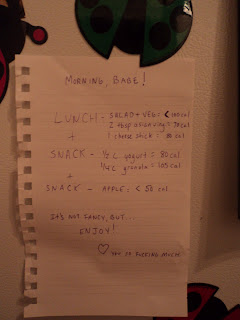 MORNING, BABE!
LUNCH = SALAD + VEG = < 100 cal
+ 2 tbsp = 70 cal
1 cheese stick = 80 cal
SNACK - 1/2 c. yogurt = 80 cal
1/4 c granola = 105 cal
+
SNACK - APPLE = < 50 cal
IT'S NOT FANCY, BUT...
ENJOY!
♡ YOU SO FUCKING MUCH!